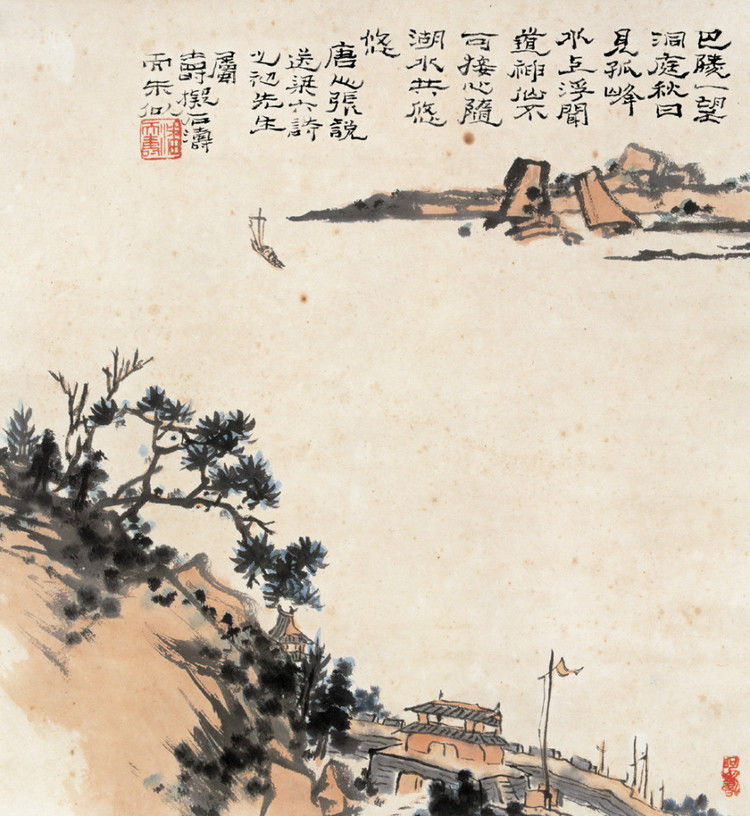 巴陵一望
洞庭秋日
見孤峰
水上浮聞
道神仙不
可接心隨
湖水共悠
悠
唐人張說
送梁六詩
先生
屬
壽橅石濤
而未似
潘天壽
阿壽